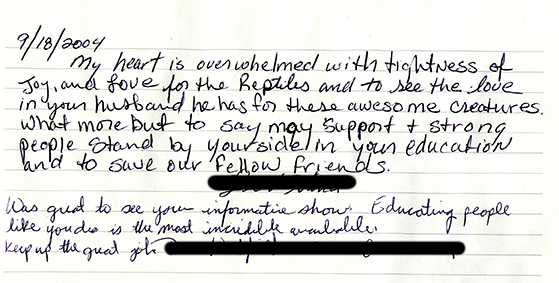 9/18/2004
My heart is overwhelmed with tightness of
Joy, and Love for the Reptiles and to see the love
in your husband he has for these awesome creatures.
What more but to say may support + strong
people stand by your side in your education
and to save our fellow friends.
Was great to see your informative show. Educating people
like you do is the most incredible available.
Keep up the great job